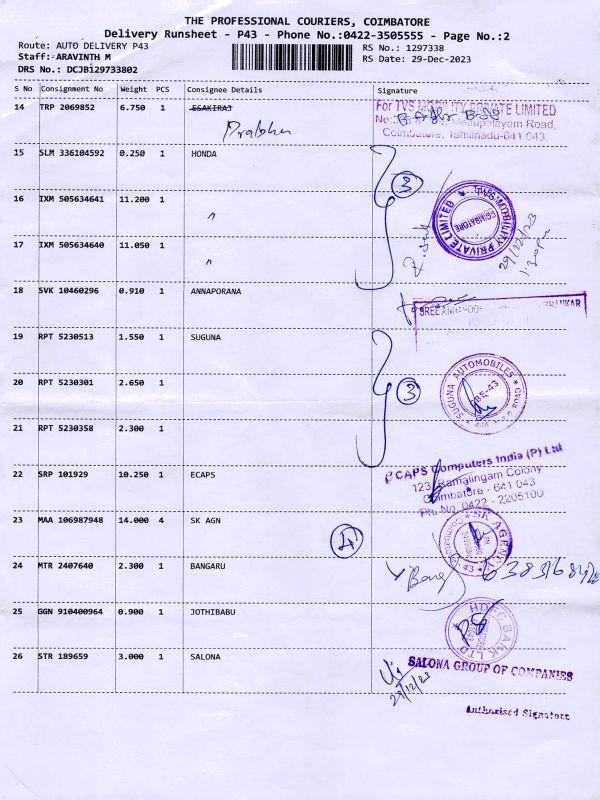 THE PROFESSIONAL COURIERS, COIMBATORE
Delivery Runsheet - P43 - Phone No.:0422-3505555 - Page No.:2
Route: AUTO DELIVERY P43
Staff: ARAVINTH M
DRS No.: DCJB129733802
RS No.: 1297338
RS Date: 29-Dec-2023
S No Consignment No Weight PCS Consignee Details Signature
14 TRP 2069852 6.750 1 ESAKIRAJ
Prabhu
For TVS MOBILITY PRIVATE LIMITED
Mettupalayam Road,
Coimbatore, Tamilnadu-641 043.
15 SLM 336104592 0.250 1 HONDA
3
16 IXM 505634641 11.200 1 "
TVS MOBILITY PRIVATE LIMITED
COIMBATORE
29/12/23
17 IXM 505634640 11.050 1 "
18 SVK 10460296 0.910 1 ANNAPORANA
19 RPT 5230513 1.550 1 SUGUNA
20 RPT 5230301 2.650 1
3
SUGUNA AUTOMOBILES
21 RPT 5230358 2.300 1
22 SRP 101929 10.250 1 ECAPS
CAPS Computers India (P) Ltd
123, Ramalingam Colony
Coimbatore - 641 043
Ph. No. 0422 - 2205100
23 MAA 106987948 14.000 4 SK AGN
4
SK AGENCY
24 MTR 2407640 2.300 1 BANGARU
25 GGN 910400964 0.900 1 JOTHIBABU
HDFC BANK LTD
26 STR 189659 3.000 1 SALONA
SALONA GROUP OF COMPANIES
29/12/23
Authorised Signatory